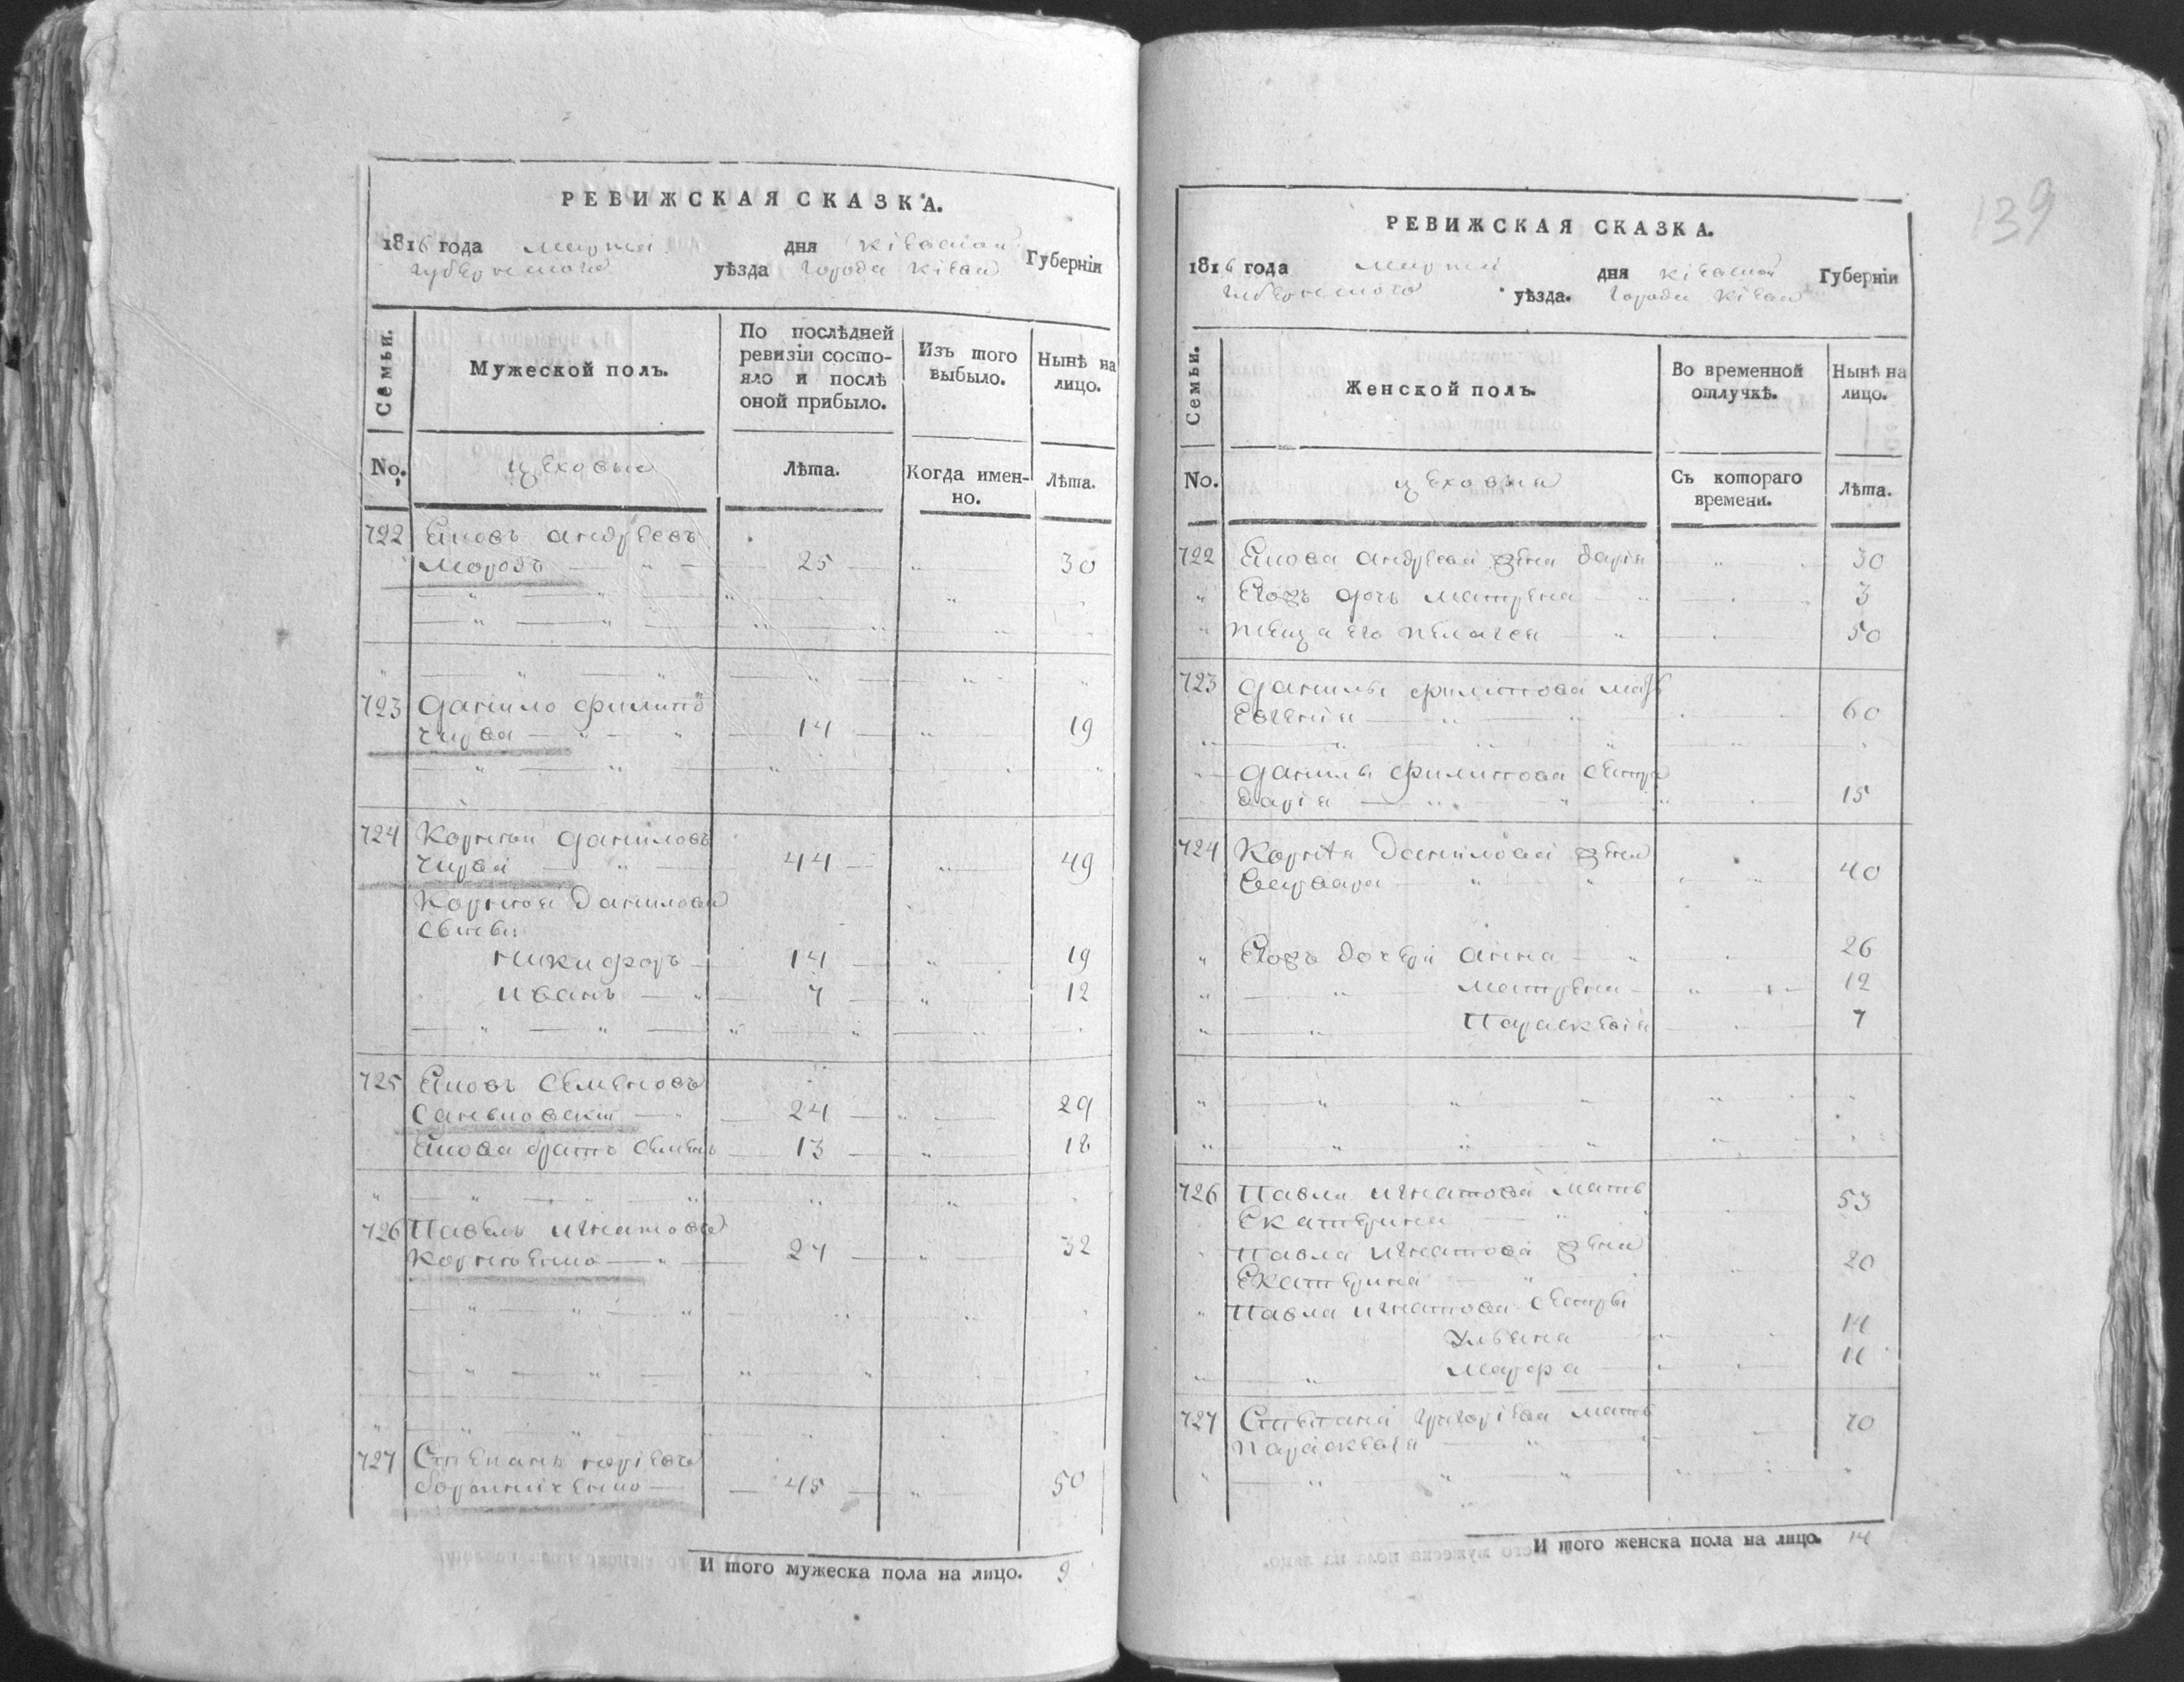 РЕВИЖСКАЯ СКАЗКА.
1816 года марта дня кіевской Губерніи
губернского уѣзда города Кіева
Семьи. Мужеской полъ. По послѣдней ревизіи состояло и послѣ оной прибыло. Изъ того выбыло. Нынѣ на лицо.
No. цеховыя Лѣта. Когда именно. Лѣта.
722 Яковъ андреевъ
Морозъ 25 30
723 Данило филипо
Чирва 14 19
724 Корней даниловъ
Чирва 44 49
Корнея данилова
сыновья
Никифоръ 14 19
иванъ 7 12
725 Яковъ Семеновъ
24 29
Якова братъ Семенъ 13 18
726 Павелъ игнатовъ
Корнѣенко 27 32
727 Степанъ
45 50
И того мужеска пола на лицо. 9
139
РЕВИЖСКАЯ СКАЗКА.
1816 года марта дня кіевской Губерніи
губернского уѣзда. города Кіева
Семьи. Женской полъ. Во временной отлучкѣ. Нынѣ на лицо.
No. цеховыя Съ котораго времени. Лѣта.
722 Якова андреева жена дарія 30
Егожъ дочь матрена 3
теща его пелагея 50
723 данилы филипова мать
Евгенія 60
данилы филипова сестра
дарія 15
724 Корнѣя данилова жена
варвара 40
Егожъ дочери анна 26
матрена 12
Параскевія 7
726 Павла игнатова мать
Екатерина 53
Павла игнатова жена
Екатерина 20
Павла игнатова сестры
Ульяна 14
Марфа 11
727 Степана григоріева мать
параскевія 70
И того женска пола на лицо. 14